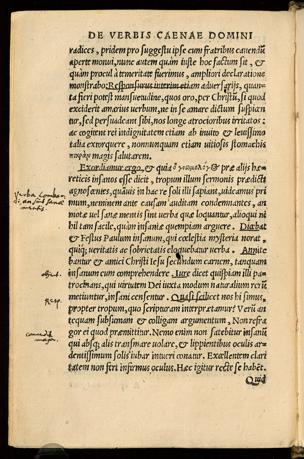 DE VERBIS CAENAE DOMINI
radices, pridem pro suggestu ipse cum fratribus cavendũ
aperte monui, nunc autem quàm iuste hoc factum sit, &
quàm procul à temeritate fuerimus, ampliori declaratione
monstrabo: Responsurus interim etiam adversarijs, quan-
ta fieri potest mansuetudine, quos oro, per Christũ, si quid
exciderit amarius verbum, ne in se amare dictum suspicen
tur, sed persuadeant sibi, nos longe atrocioribus irritatos:
ac cogitent rei indignitatem etiam ab invito & levissimo
talia extorquere, nonnunquam etiam vitiosis stomachis
magis salutarem.
Exordiamur ergo, & quia & præ alijs hæ
reticis insanos esse dicit, tropum illum sermonis prædict
agnosentes, quàuis in hac re soli illi sapiant, videamus pri
mum, neminem ante causam auditam condemnantes, an
motæ vel sanæ mentis sint verba quæ loquantur, alioqui ni
hil tam facile, quàm insanie quempiam arguere. Dicebat
& Festus Paulum insanum, qui cælestia mysteria norat,
quiq; veritatis ac sobrietatis eloquebatur verba. Amite
bantur & antici Christi Iesu secundum carnem, tanquam
insanum eum comprehendere. Iure dicet quispiam illi pa
trocinans, qui virtutem Dei iuxta modum naturalium rerũ
metiuntur, insani censentur. Quasi scilicet nos hi simus,
propter tropum, quo scripturam interpretamur? Verũ an
tequam subsumam & colligam argumentum, Non refra
gor ei quod præmittitur. Nemo enim non fatebitur insanũ
qui absq; alis transmare volare, & lippientibus oculis ar-
dentissimum solis iubar intueri conatur. Excellentem clari
tatem non fert infirmus oculus. Hæc igitur recte se habẽt.
Quid
Obiect.
Resp.